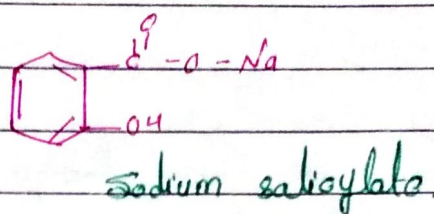 O
C - O - Na
OH
Sodium salicylate